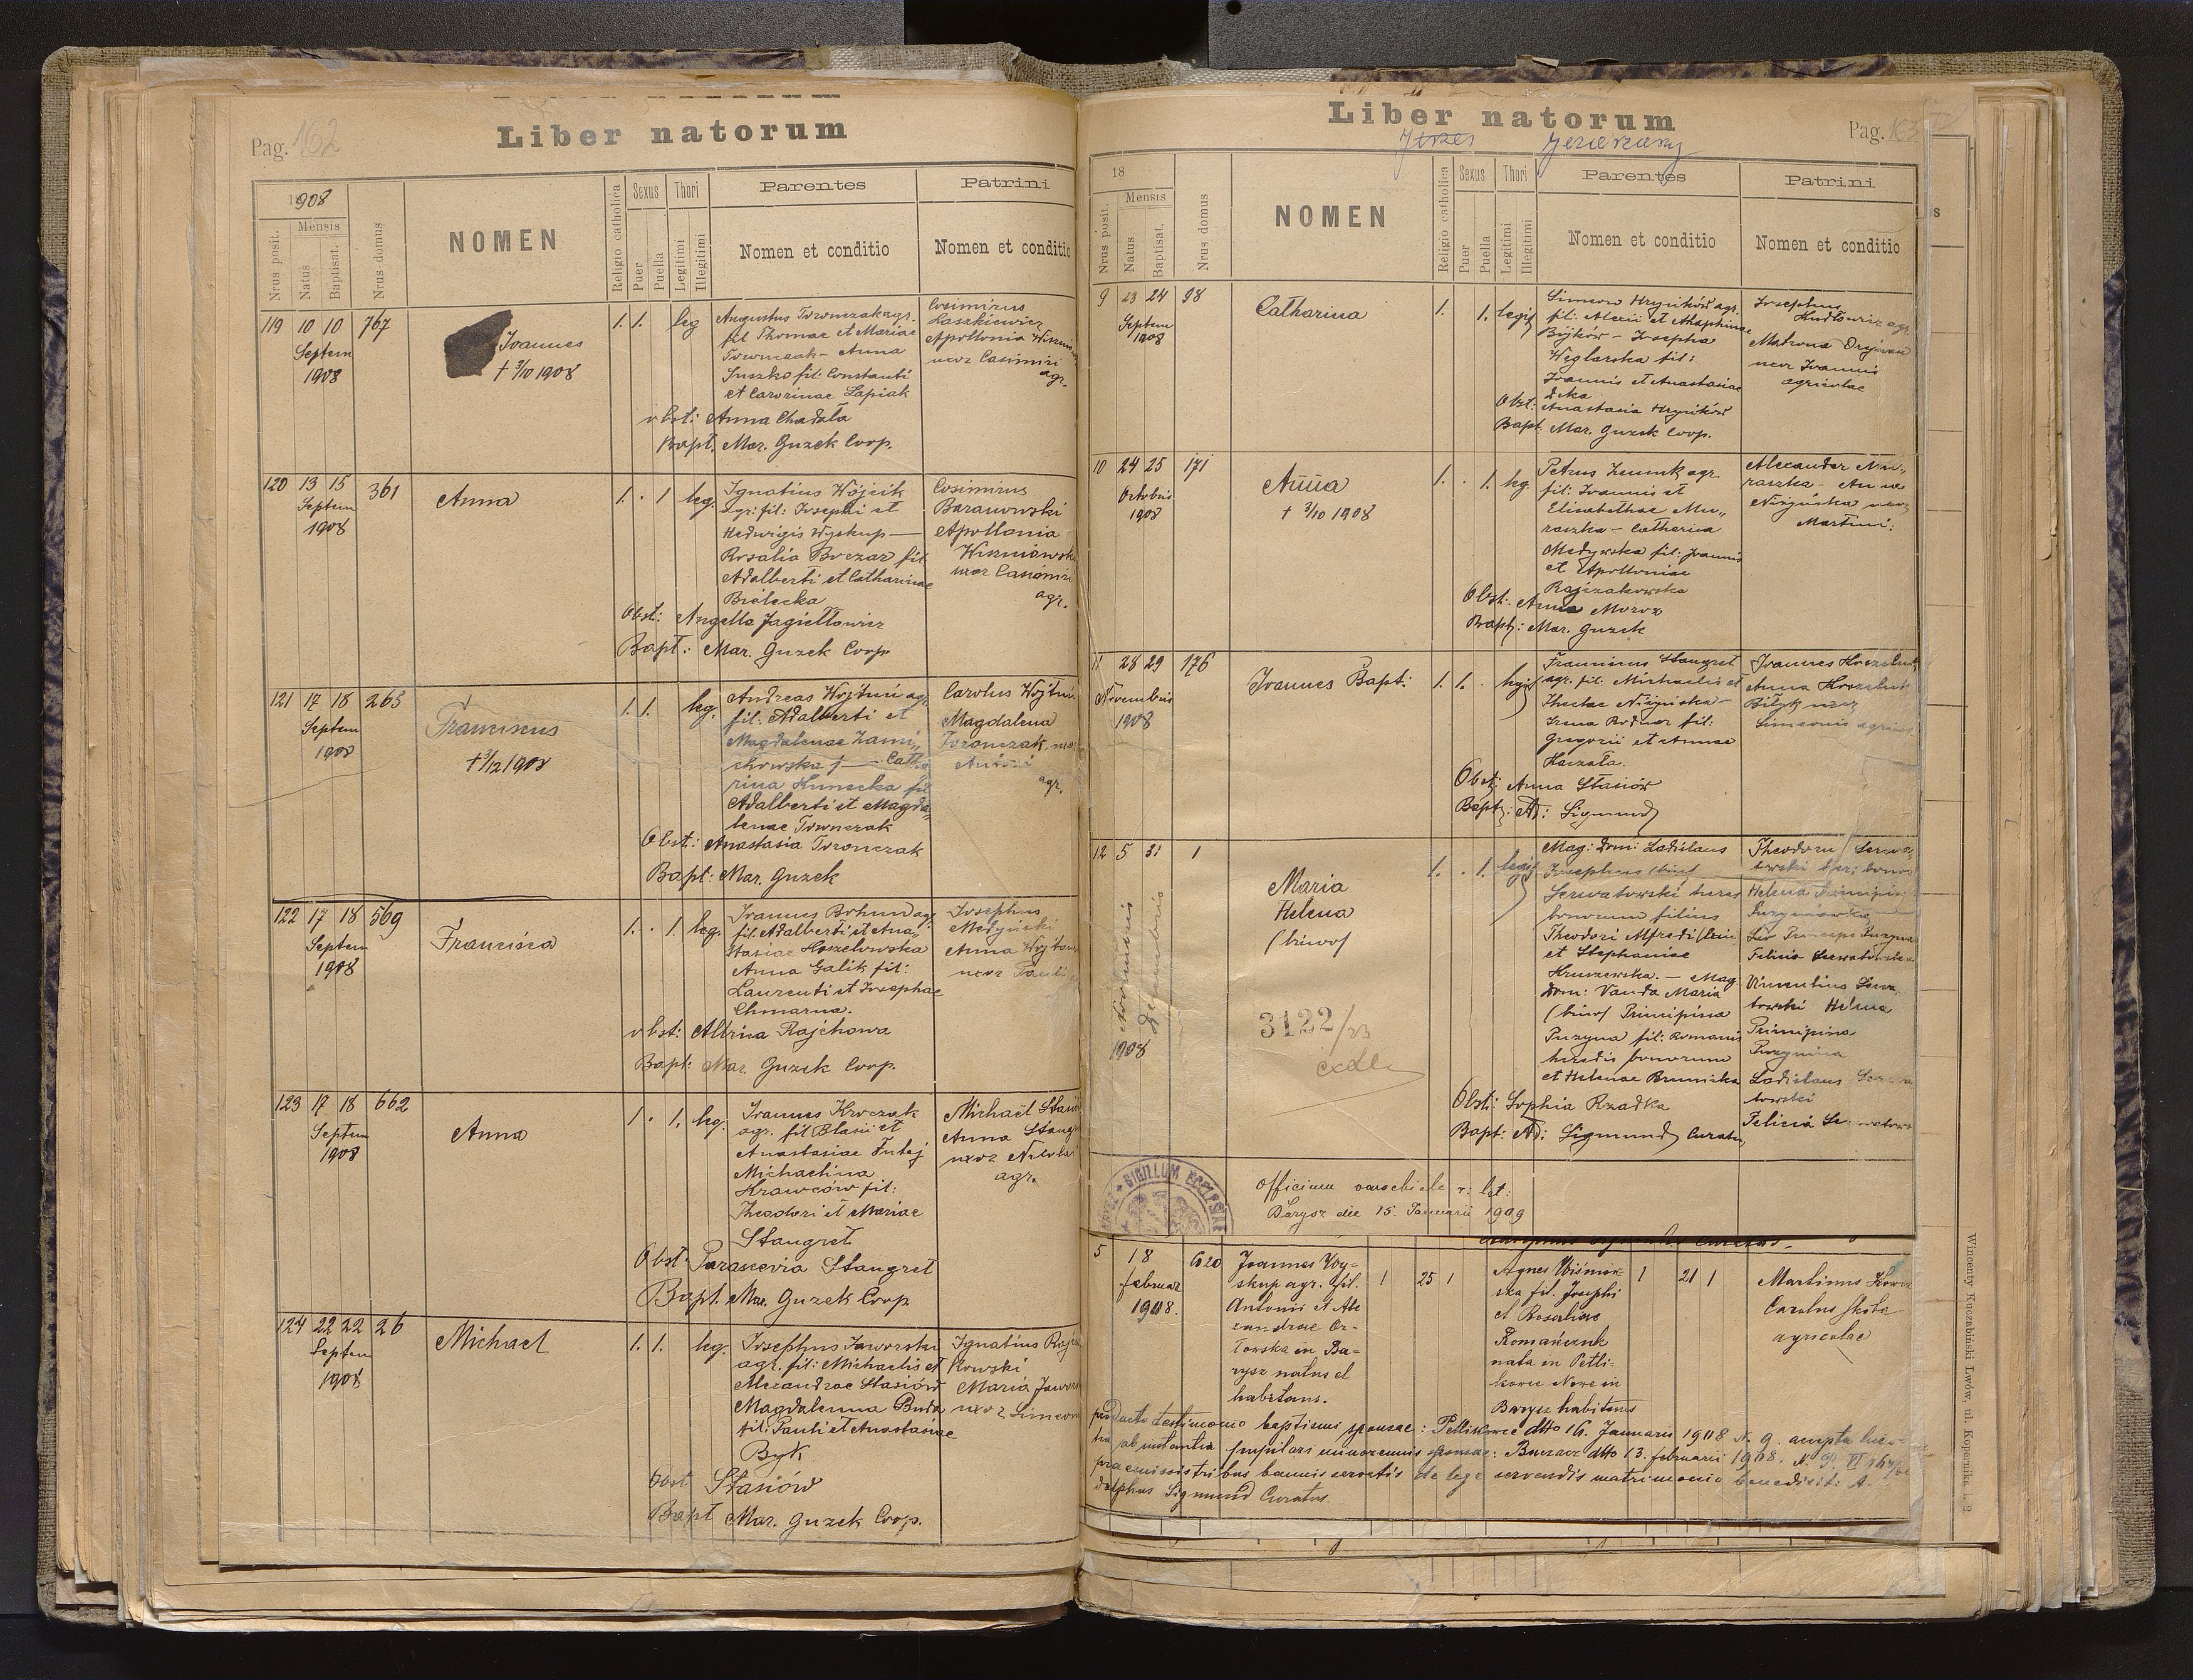 Pag. 162
Liber natorum
1908
Nrus posit.
Mensis
Natus
Baptisat.
Nrus domus
NOMEN
Religio catholica
Sexus
Puer
Puella
Thori
Legitimi
Illegitimi
Parentes
Nomen et conditio
Patrini
Nomen et conditio
119 10 10 767
Septem
1908
Joannes
† 3/10 1908
1. 1. leg
Augustus Toronczak agr.
fil Thomae et Mariae
Toronczak - Anna
Suszko fil: Constanti
et Carorinae Łapiak
obst: Anna Chadała
Bapt. Mar. Guzek Coop.
Casimirus
Laszkiewicz
Apollonia
uxor Casimiri
agr.
120 13 15 361
Septem
1908
Anna
1. . 1 leg.
Ignatius Wójcik
agr: fil: Josephi et
Hedwigis Wyskup —
Rosalia Boczar fil
Adalberti et Catharinae
Bielecka
Obst: Angella Jagiełłowicz
Bapt: Mar. Guzek Coop
Casimirus
Baranowski
Apollonia
Wiszniowsk
uxor Casimiri
agr.
121 17 18 265
Septem
1908
Franciscus
† 3/12 1908
1. 1. leg.
Andreas Wójtuń agr
fil: Adalberti et
Magdalenae Zami„
chowska — Catha
rina Kunecka fil
Adalberti et Magda„
lenae Toronczak
Obst: Anastasia Toronczak
Bapt: Mar. Guzek
Carolus Wójtu
Magdalena
Toronczak
agr.
122 17 18 569
Septem
1908
Francisca
1. . 1. leg.
Joannes Bohun agr
fil. Adalberti et Ana„
stasiae Hoszelowska
Anna Galik fil:
Laurenti et Josephae
Chmarna.
obst: Altrina Rajchowa
Bapt: Mar. Guzek Coop.
Josephus
Medyński
Anna
uxor Pauli
123 17 18 662
Septem
1908
Anna
1 . 1. leg.
Joannes Kroczak
agr. fil Blasii et
Anastasiae Futej
Michaelina
Krawców fil:
Theodori et Mariae
Stangret
Obst: Parascevia Stangret
Bapt. Mar. Guzek Coop
Michael
Anna
uxor
agr.
124 22 22 26
Septem
1908
Michael
1. 1. leg.
Josephus Jaworski
agr. fil: Michaelis et
Alexandrae Stasiów
Magdalenna Buda
fil: Pauli et Anastasiae
Byk
Obst Stasiów
Bapt Mar. Guzek Coop.
Ignatius Raj
kowski
Maria
uxor Simeon
Liber natorum
Jezierzany
Pag. 163
18
Nrus posit.
Mensis
Natus
Baptisat.
Nrus domus
NOMEN
Religio catholica
Sexus
Puer
Puella
Thori
Legitimi
Illegitimi
Parentes
Nomen et conditio
Patrini
Nomen et conditio
9 23 24 98
Septem
1908
Catharina
1. 1. legit
Simeon Hryńków agr.
fil: Alexii et Ahaphinae
Bójków - Josepha
Węglarska fil:
Joannis et Anastasiae
Obst: Anastasia Hryńków
Bapt: Mar. Guzek Coop.
Josephus
agr.
Matrona
uxor Joannis
agricolae
10 24 25 171
Octobris
1908
Anna
† 3/10 1908
1. . 1. leg
Petrus agr.
fil: Joannis et
Elisabethae Mu„
raszka - Catharina
Medyńska fil: Joannis
et Apolloniae
Rajzakowska
Obst: Anna Moroz
Bapt: Mar. Guzek
Alexander Mu„
raszka - Anna
uxor
Martini:
11 28 29 176
Novembris
1908
Joannes Bapt:
1. 1. legit
Stangret
agr. fil: Michaelis et
Theclae
Irena Bodnar fil:
Gregorii et Annae
Kaczała.
Obst: Anna Stasiów
Bapt: A: Sigmund
Joannes
Anna
Bilyk uxor
Simeonis
12 5 31 1
Novembris
Decembris
1908
Maria
Helena
(binom)
3122/23
1. . 1. legit
Mag: dom: Ladislaus
Josephus (bin)
Serwatowski heres
bonorum filius
Theodori Alfredi (bin)
et Stephaniae
Kruszewska. - Mag:
dom: Vanda Maria
(binom) Principissa
Puzyna fil: Romani
heredis bonorum
et Helenae Brunicka
Obst: Sophia Rzadka
Bapt: A: Sigmund Curatus
Theodorus Serwa„
towski
Helena Principissa
Leo Princeps Puzyna
Felicia Serwatowska
Vincentius Serwa
towski Helena
Principissa
Puzynina
Ladislaus
towski
Felicia
SIGILLUM ECCLESIAE
Officium parochiale r: lat:
Barysz die 15. Januarii 1909
5 18 620
Februar
1908.
Joannes Wy-
skup agr. fil.
Antonii et Ale
xandrae Or-
łowska in Ba-
rysz natus et
habitans.
1 25 1
Agnes Wiśniow
ska fil. Josephi
et Rosaliae
Romańczuk
nata in Petli-
kowce Nowe in
Barysz habitans
1 21 1
Martinus
Carolus Skiba
agricolae
producto testimonio baptismi sponsae: Petlikowce dtto 16. Januarii 1908 N. 9. accepta licen-
tia ab instantia pupilari minorennis sponsae: Buczacz dtto 13. februarii 1908.
praemissis tribus bannis servatis de lege servandis matrimonio benedixit: A.
dolphus Sigmund Curatus.
Wincenty Kuczabiński Lwów, ul. Kopernika 1. 2.